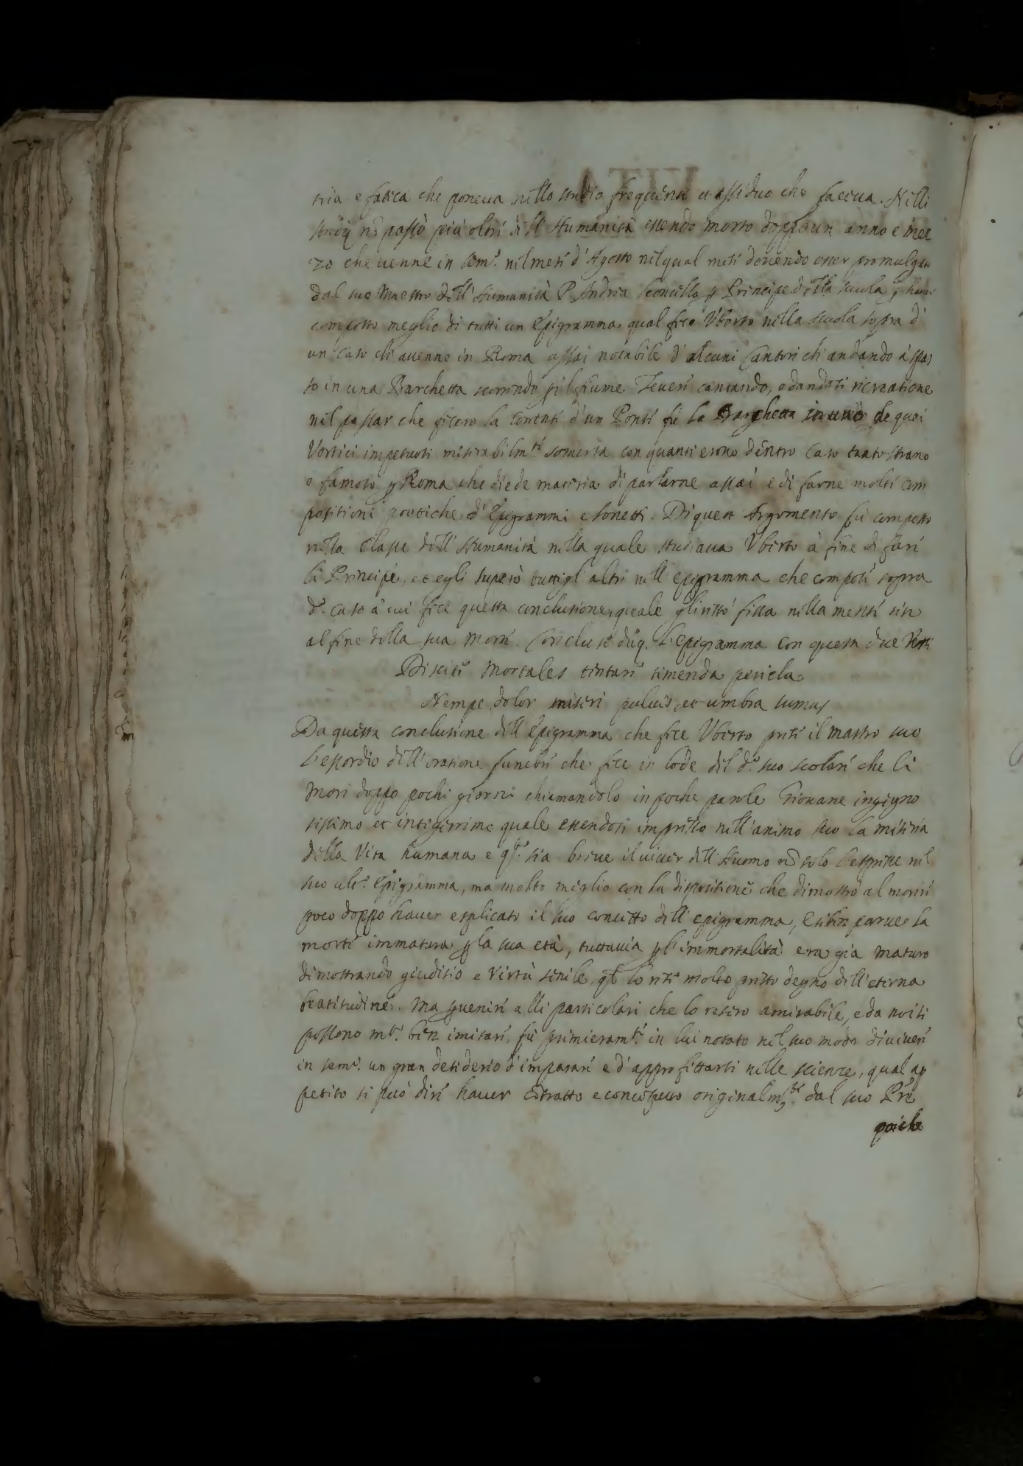 tria e fatica che poneua nello studio frequente et assiduo che faceua. Nelli
studij nō passò più oltre dell'Humanità essendo morto doppo un anno e mez
zo che uenne in Sem.º nel mese d'Agosto nel qual mese douendo esser promulgato
dal suo Maestro dell'Humanità P. Andrea per Principe della scuola per hauer
composto meglio di tutti un Epigramma qual fece Vberto nella scuola sopra d'
un caso ch'auenne in Roma assai notabile d'alcuni Cantori ch'andando à spas
so in una Barchetta secondo il fiume Teuere cantando, e dandosi ricreatione
nel passar che fecero la corrente d'un Ponte fù la Barchetta in uno de quei
Vortici impetuosi miserabilm.te somersa con quanti erono dentro Caso tanto strano
e famoso per Roma che diede materia di parlarne assai e di farne molte com
positioni poetiche d'Epigrammi e Sonetti. Di questo Argomento fù composto
nella Classe dell'Humanità nella quale studiaua Vberto à fine di fare
li Principe, et egli superò tutti gl'altri nell'epigramma che compose sopra
d.º caso à cui fece questa conclusione, quale gli restò fissa nella mente sin
al fine della sua morte. Concluse duq. l'Epigramma con questi due Versi
Discite Mortales tentare timenda pericla
Nempe dolor miseri puluis, et umbra sumus
Da questa conclusione dell'Epigramma che fece Vberto prese il mastro suo
l'essordio dell'oratione funebre che fece in lode del d.º suo scolare che li
morì doppo pochi giorni chiamandolo in poche parole Giouane ingegno
sissimo et integerrimo quale essendosi impresso nell'animo suo la miseria
della Vita humana e q.to sia breue il uiuer dell'Huomo nō solo l'espresse nel
suo ult.º Epigramma, ma molto meglio con la dispositione che dimostrò al morire
poco doppo hauer esplicato il suo concetto dell'epigramma, e se ben parue la
morte immatura per la sua età, tuttauia per l'immortalità era già maturo
dimostrando giuditio e Virtù senile, q.l lo rese molto presto degno dell'eterna
beatitudine. Ma per uenire alli particolari che lo resero amirabile, e da noi si
possono m.to bene imitare, fù primieram.te in lui notato nel suo modo di uiuere
in sem.º un gran desiderio d'imparare e d'approfittarsi nelle scienze, qual ap
petito si può dire hauer estratto e conceputo originalm.te dal suo Pre
poiche